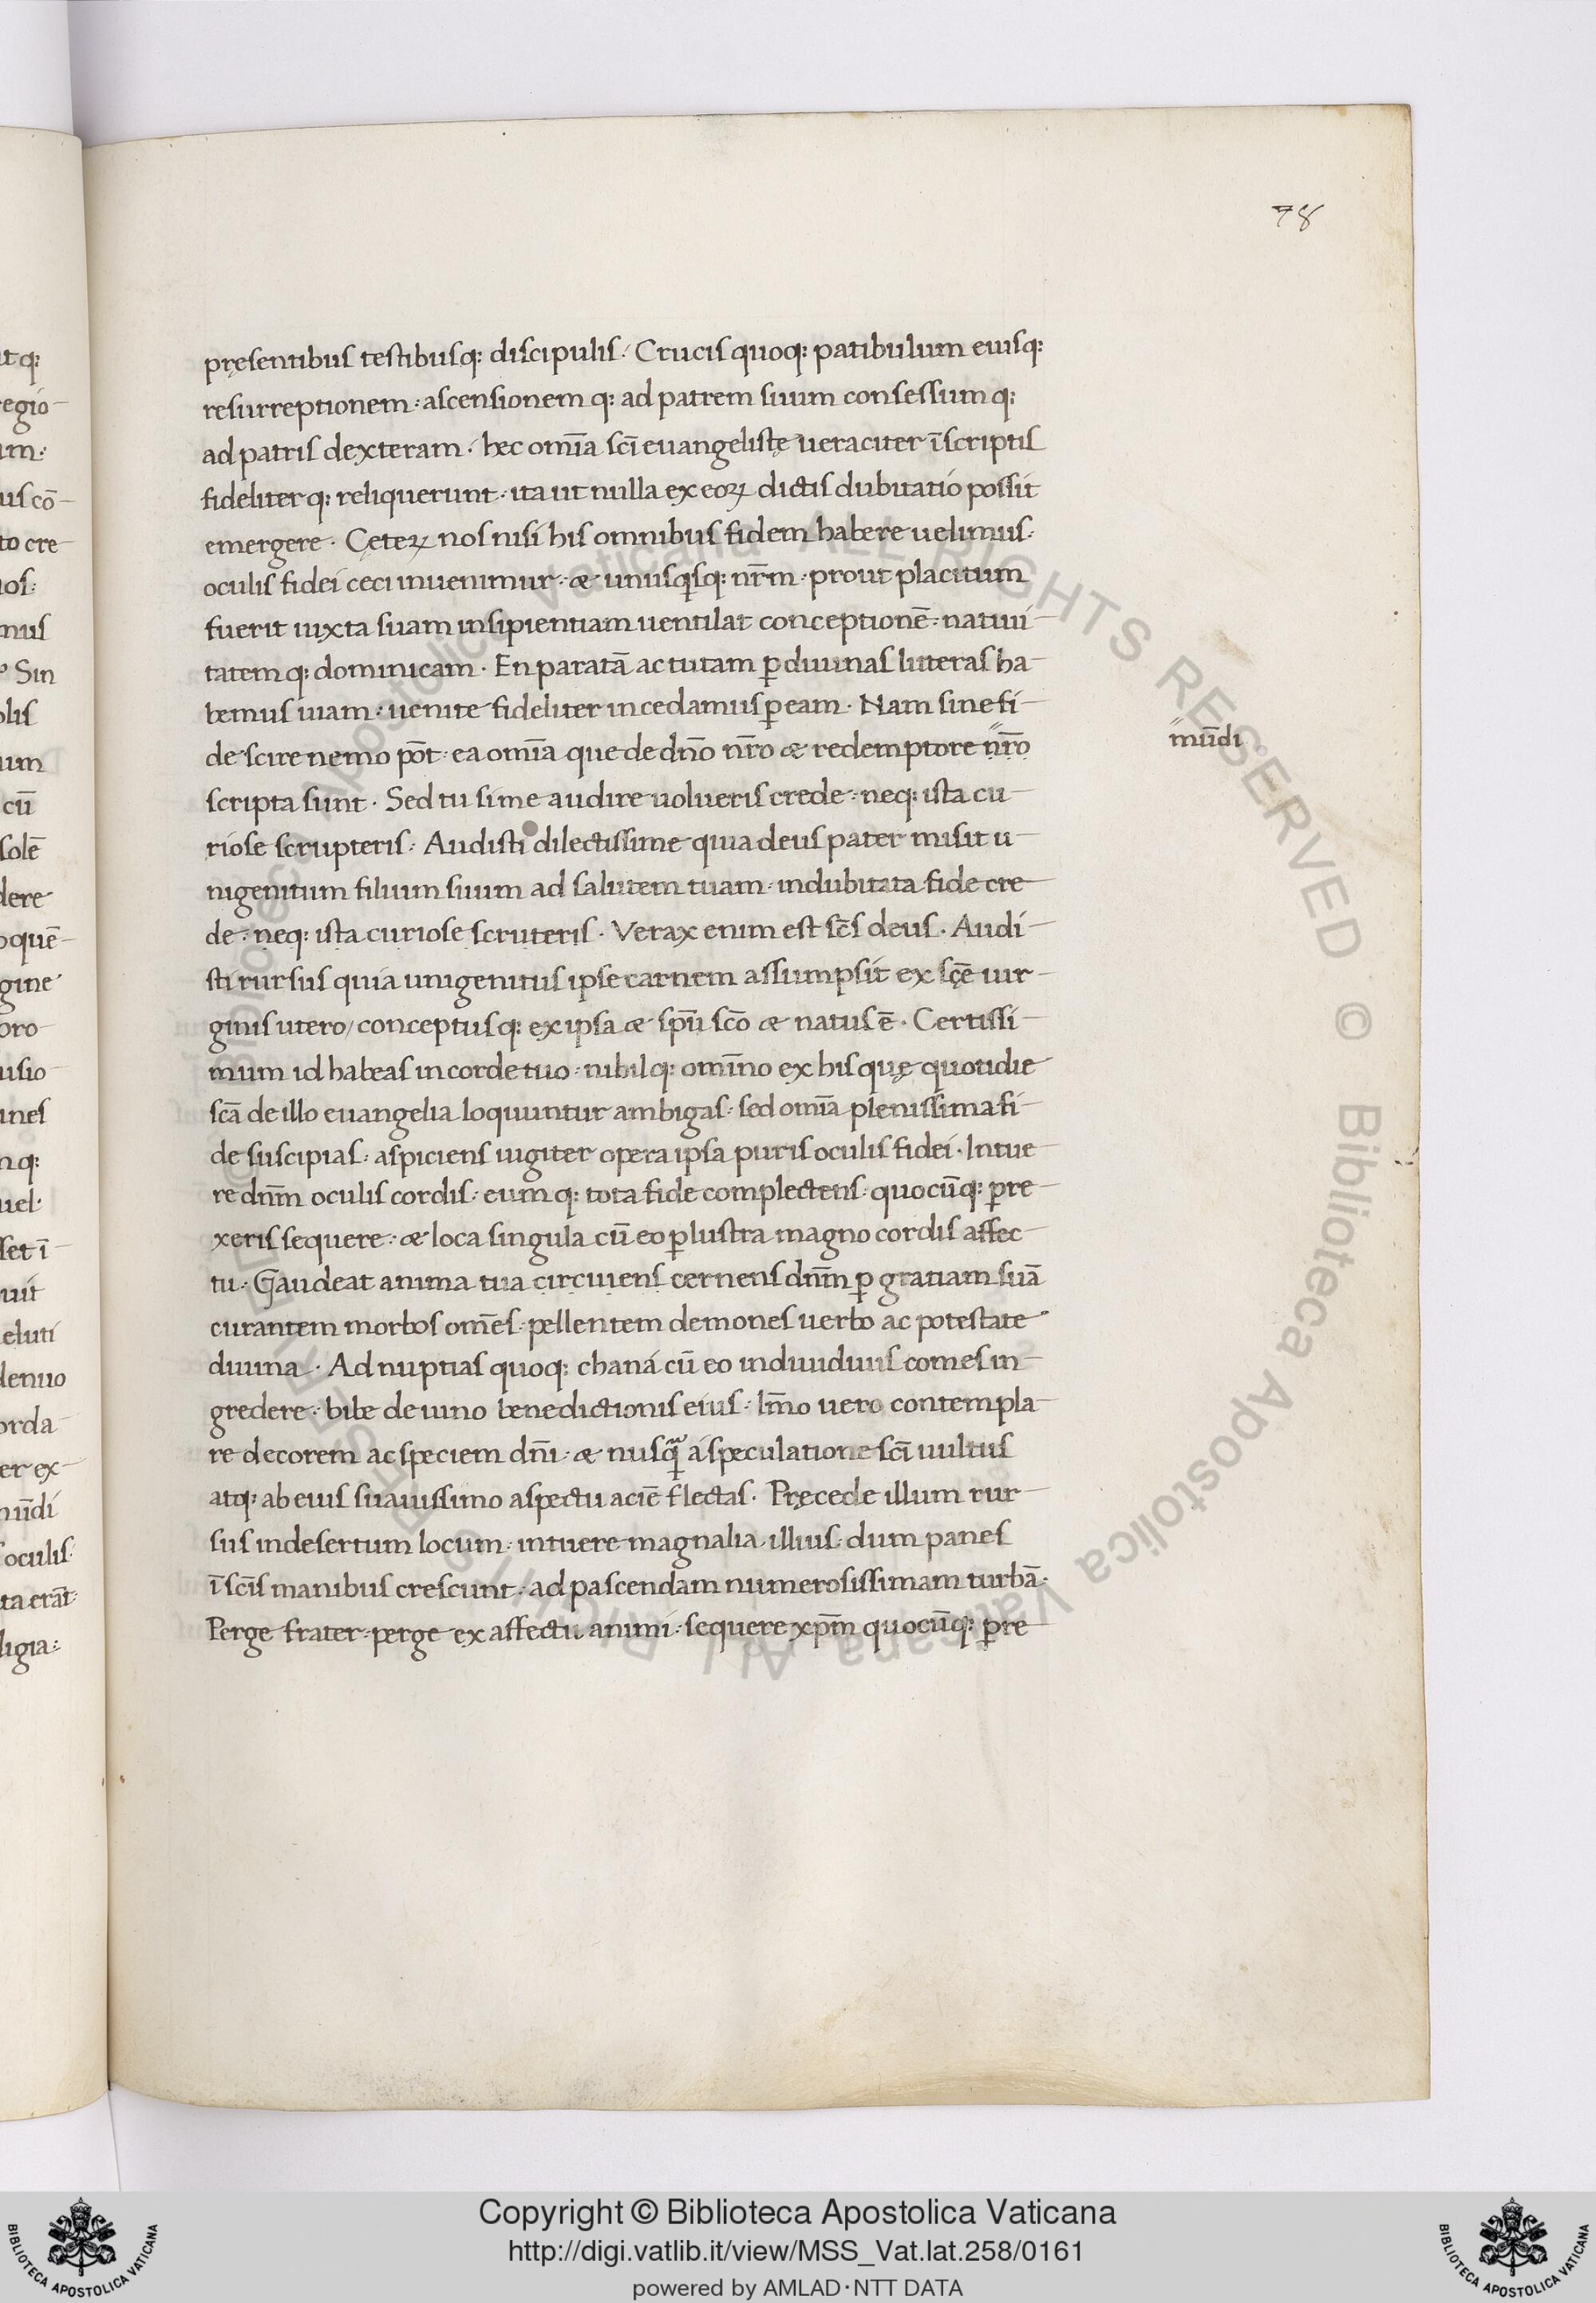 78
pręsentibus testibusq: discipulis. Crucis quoq: patibulum eiusq:
resurreptionem: ascensionem q: ad patrem suum consessum q:
ad patris dexteram. hec om̄ia sc̄i euangelistę ueraciter ī scriptis
fideliter q: reliquerunt. ita ut nulla ex eoꝝ dictis dubitatio possit
emergere. Cęteꝝ nos nisi his omnibus fidem habere uelimus:
oculis fidei ceci inuenimur: æ unusq̄sq: nr̄m. prout placitum
fuerit iuxta suam insipientiam uentilat conceptionē: natiui-
tatem q: dominicam. En paratā ac tutam ꝑ diuinas litteras ha-
bemus uiam: uenite fideliter incedamus ꝑ eam. Nam sine fi-
de scire nemo pōt: ea om̄ia que de dn̄o nr̄o æ redemptore nr̄o
mūdi
scripta sunt. Sed tu si me audire uolueris crede: neq: ista cu-
riose scrupteris: Audisti dilectissime quia deus pater misit u-
nigenitum filium suum ad salutem tuam. indubitata fide cre-
de: neq: ista curiose scruteris. Verax enim est sc̄s deus. Audi-
sti rursus quia unigenitus ipse carnem assumpsit ex sc̄ę uir-
ginis utero/ conceptus q: ex ipsa æ spū sc̄o æ natus ē. Certissi-
mum id habeas in corde tuo. nihil q: om̄ino ex his quę quotidie
sc̄a de illo euangelia loquuntur ambigas: sed om̄ia plenissima fi-
de suscipias: aspiciens iugiter opera ipsa puris oculis fidei. Intue-
re dn̄m oculis cordis: eum q: tota fide complectens: quocūq: ꝑre-
xeris sequere: æ loca singula cū eo ꝑlustra magno cordis affec-
tu: Gaudeat anima tua circuiens cernens dn̄m ꝑ gratiam suā
curantem morbos om̄es: pellentem demones uerbo ac potestate
diuina. Ad nuptias quoq: chaná cū eo indiuiduus comes in-
gredere: bibe de uino benedictionis eius. Im̄o uero contempla-
re decorem ac speciem dn̄i: æ nusq̄ á speculatione sc̄i uultus
atq: ab eius suauissimo aspectu aciē flectas. Pręcede illum rur-
sus in desertum locum: intuere magnalia illius: dum panes
ī sc̄is manibus crescunt: ad pascendam numerosissimam turbā.
Perge frater: perge ex affectu animi: sequere xp̄m quocūq: ꝑre-
Copyright © Biblioteca Apostolica Vaticana
http://digi.vatlib.it/view/MSS_Vat.lat.258/0161
powered by AMLAD·NTT DATA